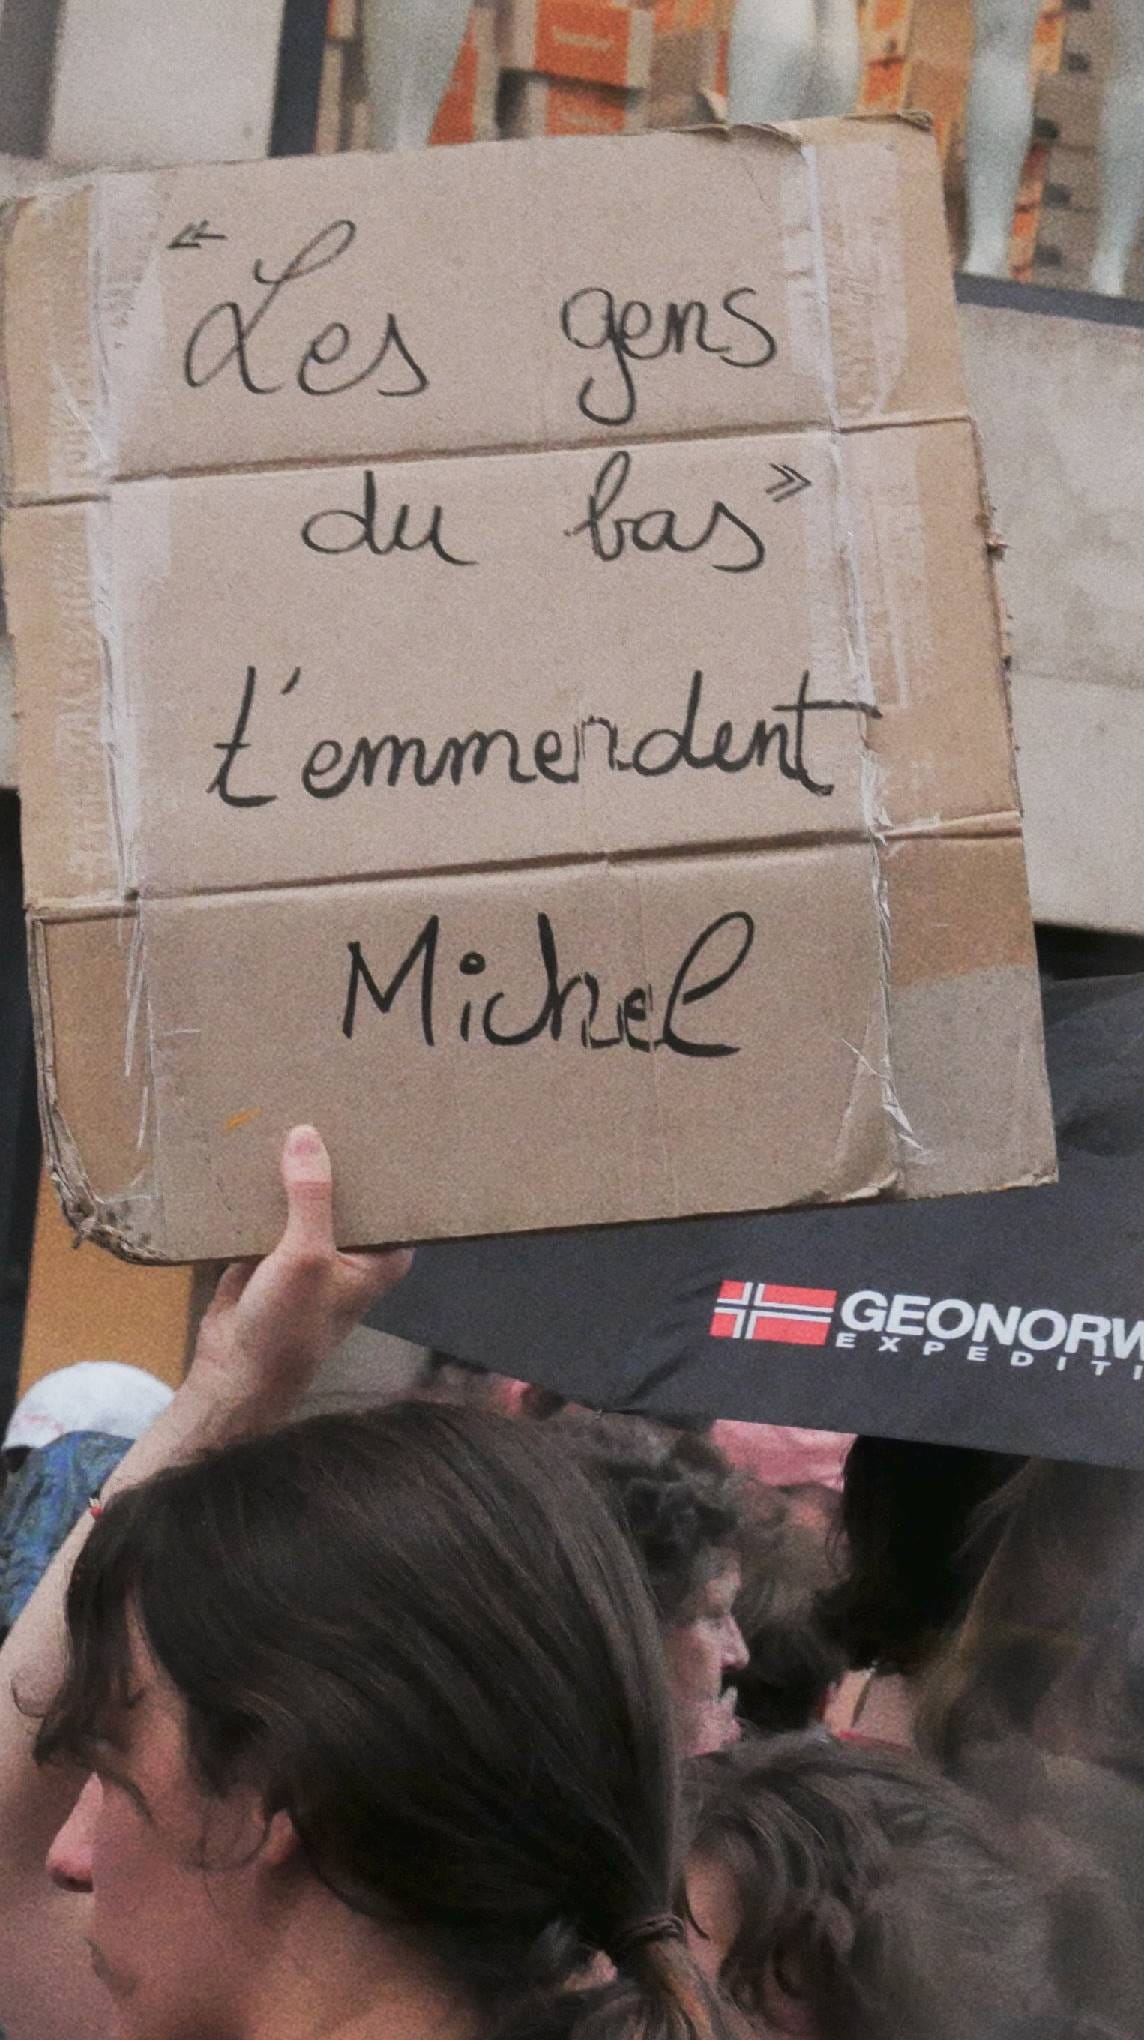 « Les gens
du bas »
t'emmendent
Michel
GEONORW
EXPEDITI